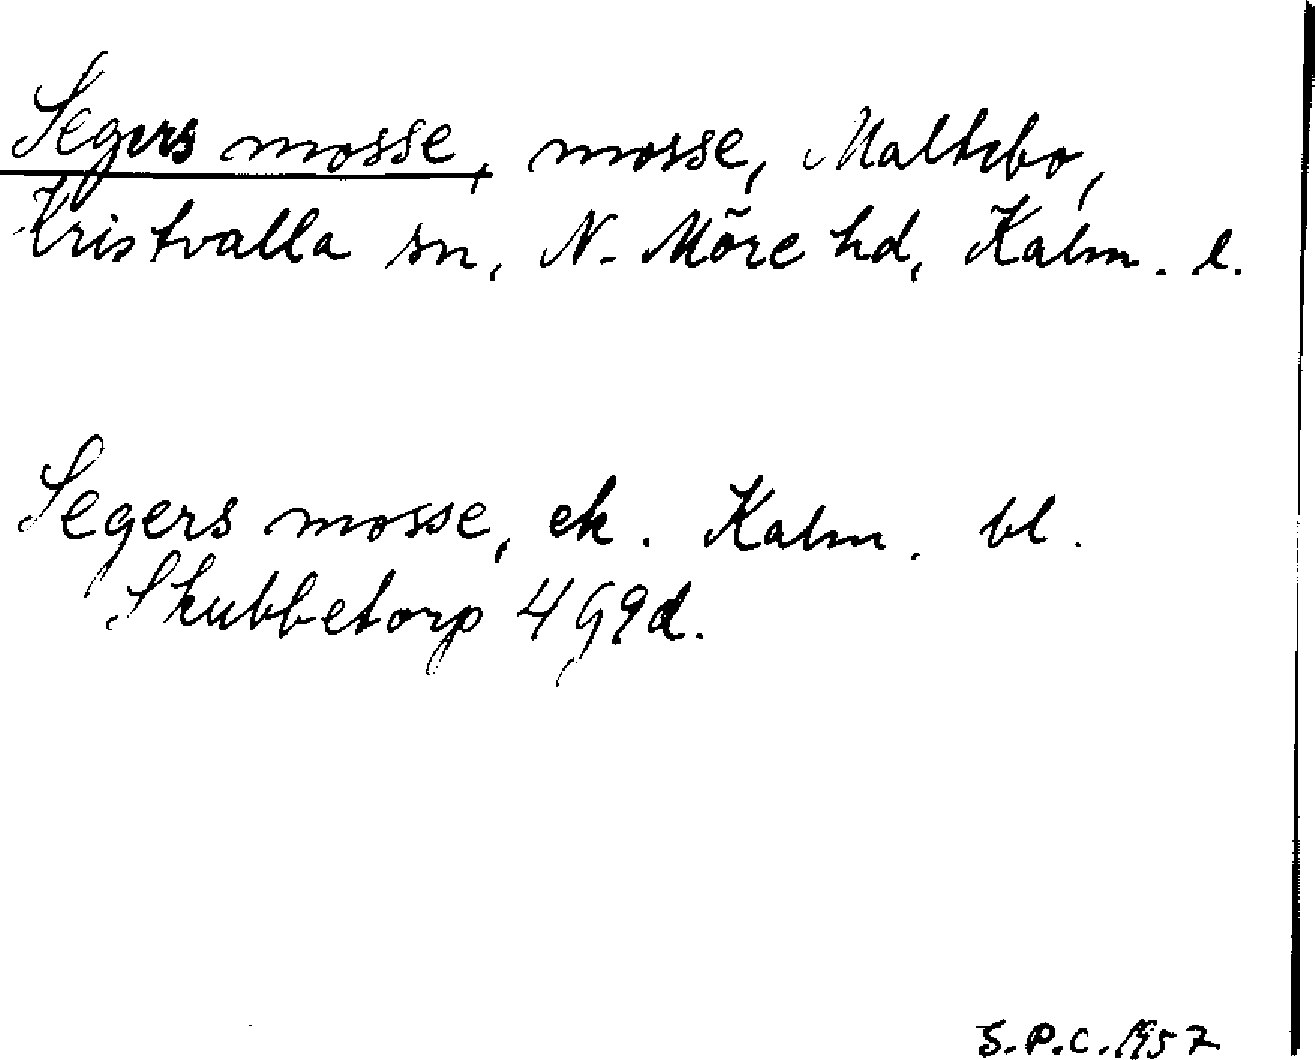 Segers mosse, mosse, Maltebo,
Kristvalla sn, N. Möre hd, Kalm. l.
Segers mosse, ek. Kalm. bl.
Skubbetorp 4 G9d.
S.P.C. 1957